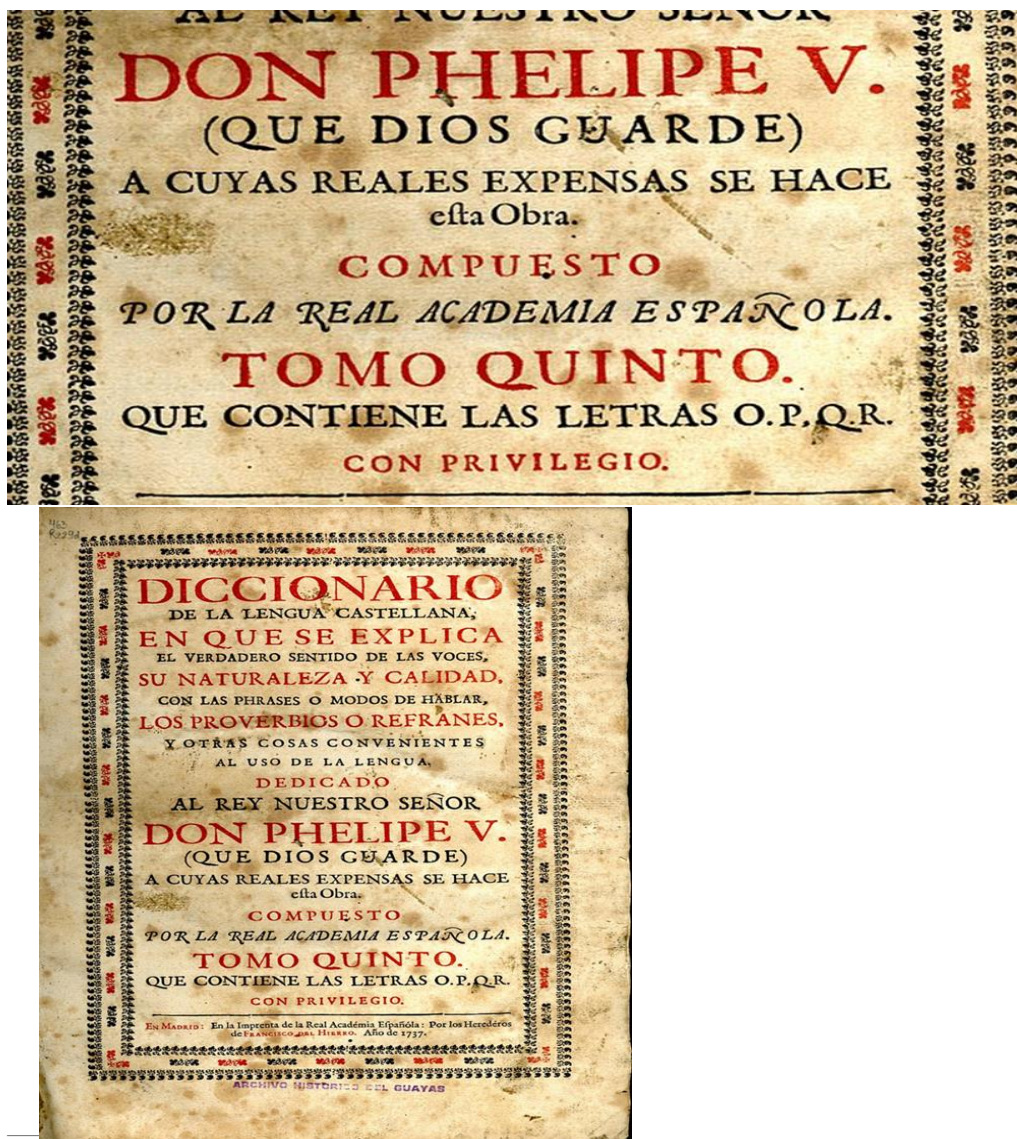 AL REY NUESTRO SEÑOR
DON PHELIPE V.
(QUE DIOS GUARDE)
A CUYAS REALES EXPENSAS SE HACE
eſta Obra.
COMPUESTO
POR LA REAL ACADEMIA ESPAÑOLA.
TOMO QUINTO.
QUE CONTIENE LAS LETRAS O.P.Q.R.
CON PRIVILEGIO.
DICCIONARIO
DE LA LENGUA CASTELLANA,
EN QUE SE EXPLICA
EL VERDADERO SENTIDO DE LAS VOCES,
SU NATURALEZA Y CALIDAD,
CON LAS PHRASES O MODOS DE HABLAR,
LOS PROVERBIOS O REFRANES,
Y OTRAS COSAS CONVENIENTES
AL USO DE LA LENGUA.
DEDICADO
AL REY NUESTRO SEÑOR
DON PHELIPE V.
(QUE DIOS GUARDE)
A CUYAS REALES EXPENSAS SE HACE
eſta Obra.
COMPUESTO
POR LA REAL ACADEMIA ESPAÑOLA.
TOMO QUINTO.
QUE CONTIENE LAS LETRAS O.P.Q.R.
CON PRIVILEGIO.
EN MADRID: En la Imprenta de la Real Académia Eſpañóla: Por los Heredéros
de FRANCISCO DEL HIERRO. Año de 1737.
ARCHIVO HISTORICO DEL GUAYAS